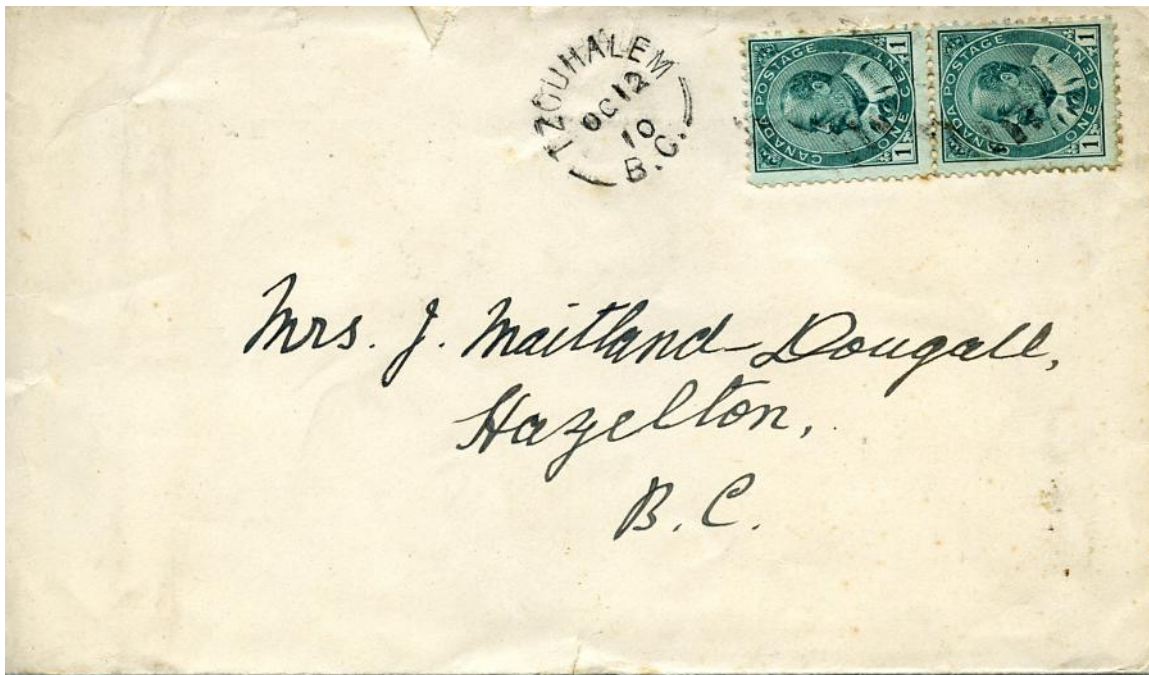 TZOUHALEM
OC 12
10
B.C.
CANADA POSTAGE
ONE CENT
1 1
CANADA POSTAGE
ONE CENT
1 1
Mrs. J. Maitland-Dougall,
Hazelton,
B. C.